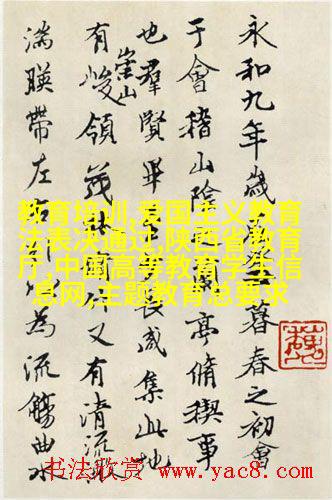 永和九年歲暮春之初會
于會稽山陰亭脩稧事
也羣賢畢長咸集此地
有崇山峻領茂林又有清流激
湍暎帶左為流觴曲水
教育培训,爱国主义教育
法表决通过,陕西省教育
厅,中国高等教育学生信
息网,主题教育总要求
书法欣赏 www.yac8.com